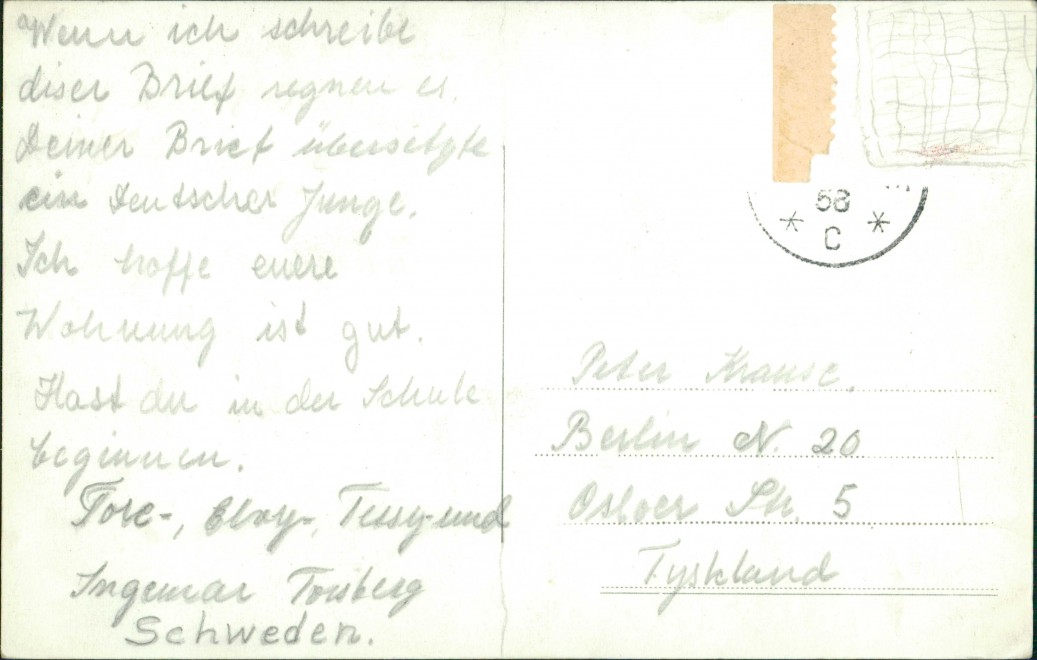 Wenn ich schreibe
diser Brief regnen es.
Deiner Brief übersetzte
ein deutscher Junge.
Ich hoffe euere
Wohnung ist gut.
Hast du in der Schule
beginnen.
Tore-, Elvy-, Tessy-und
Ingemar Forsberg
Schweden.
58
* C *
Peter Krause.
Berlin N. 20
Osloer Str. 5
Tyskland